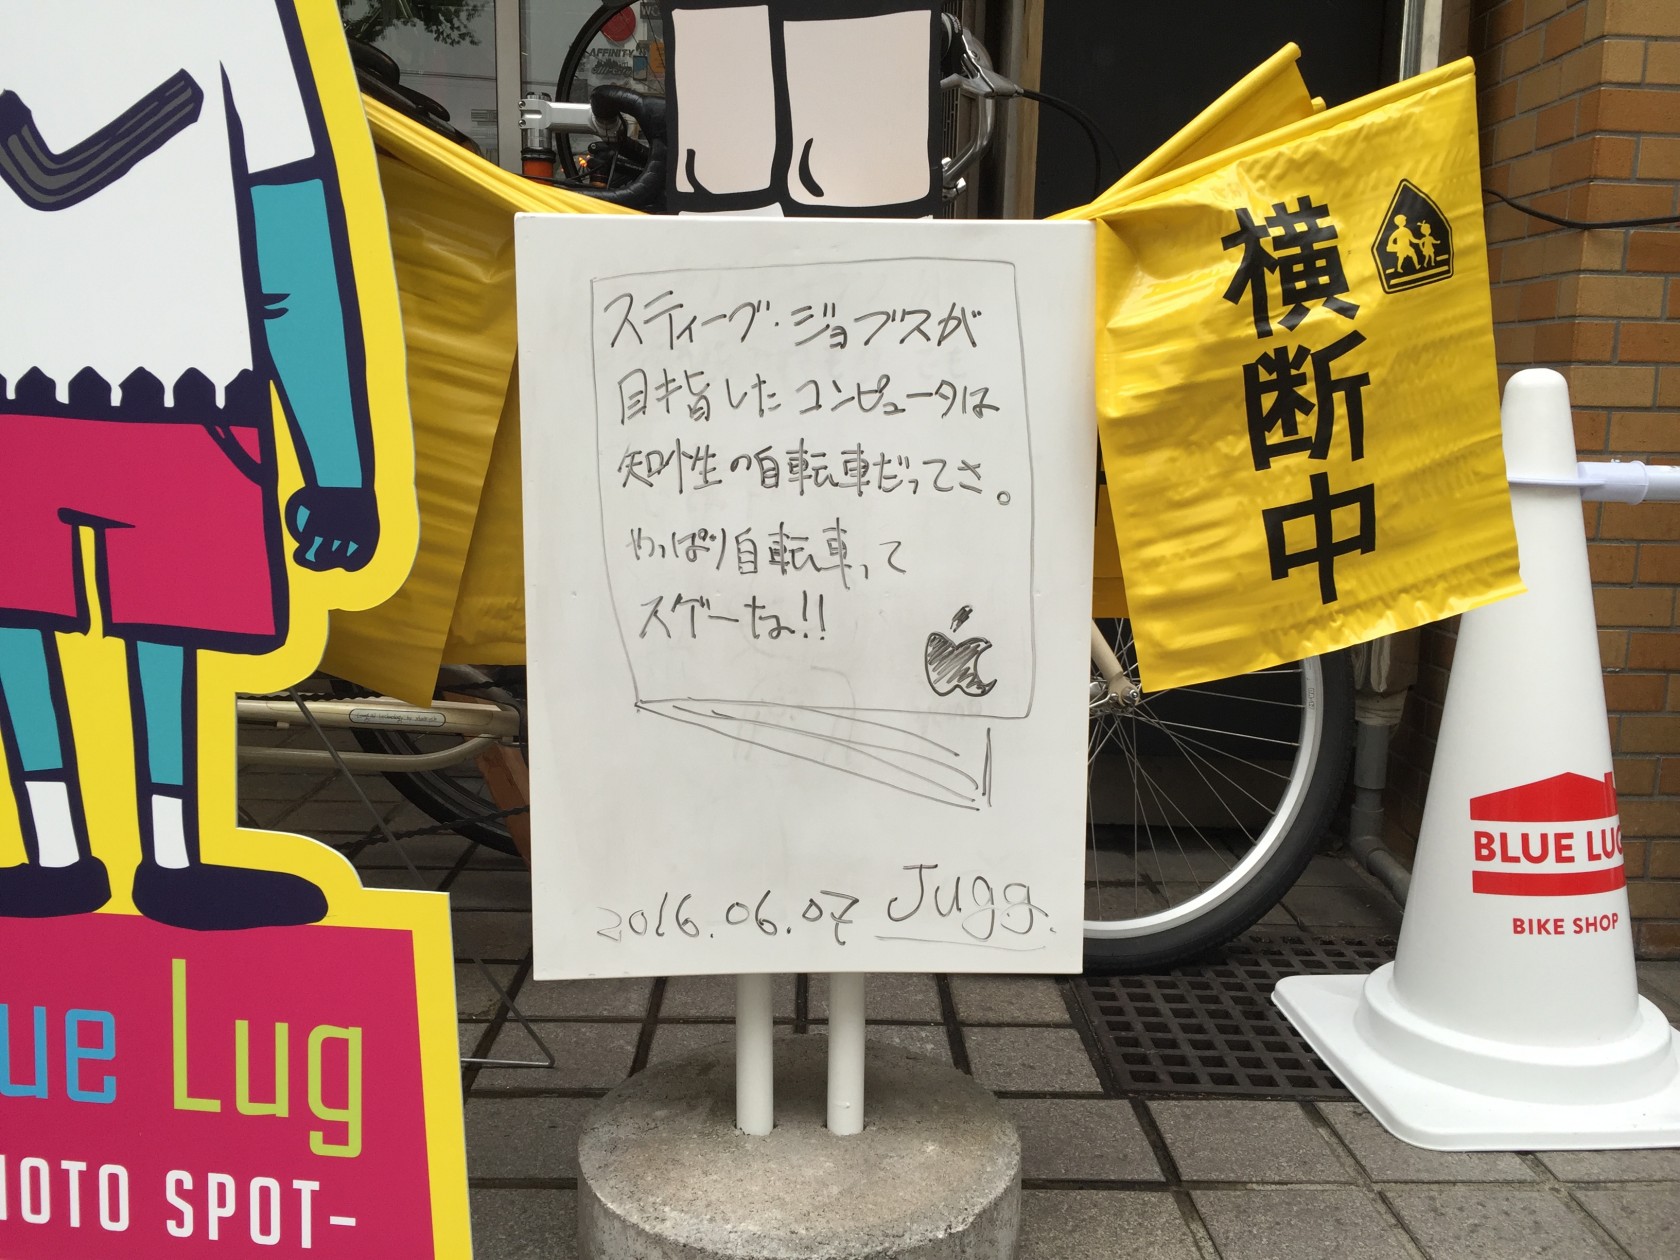 スティーブ・ジョブスが
目指したコンピュータは
知性の自転車だってさ。
やっぱり自転車って
スゲーな!!
2016.06.07 Jugg.
横断中
BLUE LUG
BIKE SHOP
ue Lug
HOTO SPOT-
AFFINITY